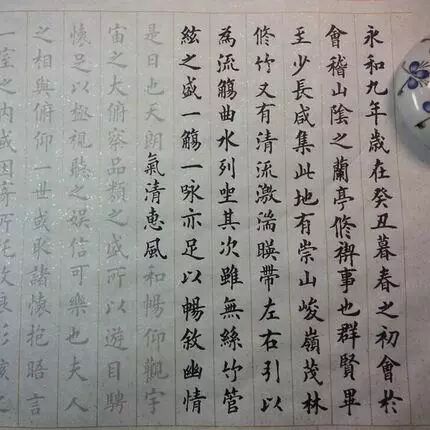 永和九年歲在癸丑暮春之初會於
會稽山陰之蘭亭修禊事也群賢畢
至少長咸集此地有崇山峻嶺茂林
修竹又有清流激湍暎帶左右引以
為流觴曲水列坐其次雖無絲竹管
絃之盛一觴一詠亦足以暢敘幽情
是日也天朗氣清惠風和暢仰觀宇
宙之大俯察品類之盛所以遊目騁
懷足以極視聽之娛信可樂也夫人
之相與俯仰一世或取諸懷抱晤言
一室之內或因寄所託放浪形骸之